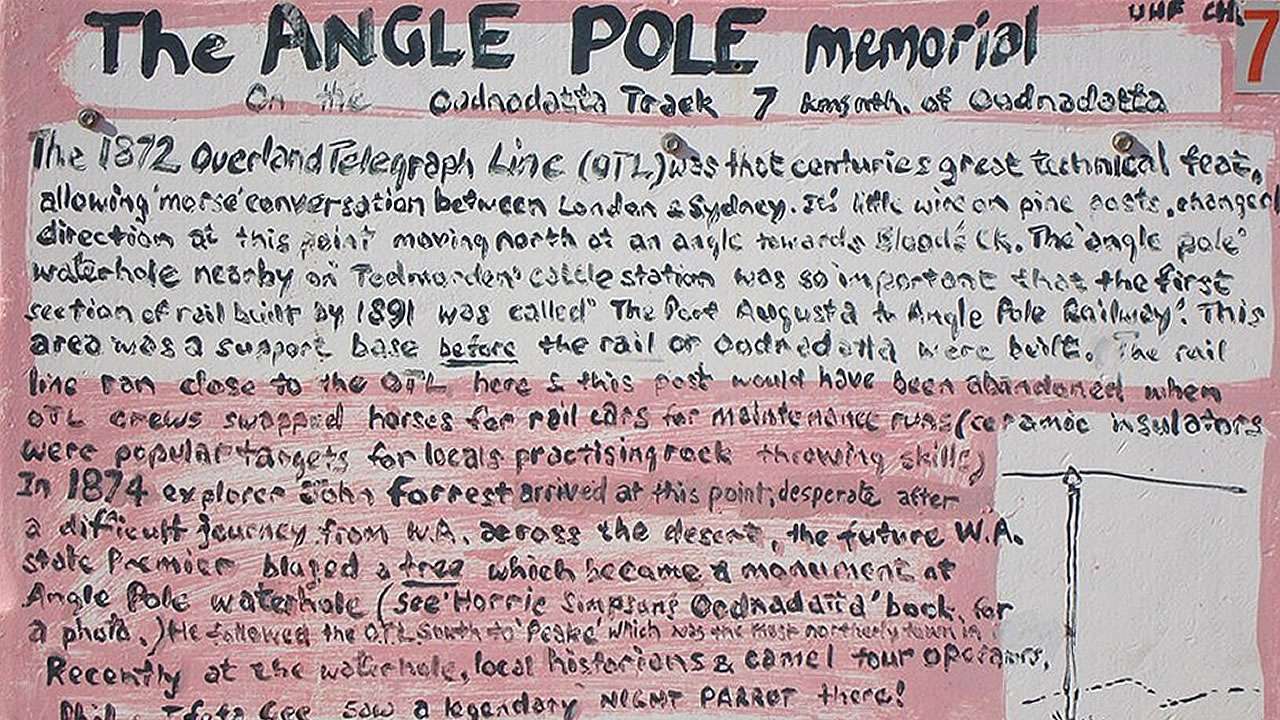 The ANGLE POLE memorial
UHF CH.
7
On the Oodnadatta Track 7 kms nth. of Oodnadatta
The 1872 Overland Telegraph Line (OTL) was that centuries great technical feat,
allowing 'morse' conversation between London & Sydney. It's little wire on pine posts, changed
direction at this point moving north at an angle towards Bloods Ck. The "angle pole"
waterhole nearby on 'Todmorden' cattle station was so important that the first
section of rail built by 1891 was called "The Port Augusta to Angle Pole Railway". This
area was a support base before the rail or Oodnadatta were built. The rail
line ran close to the OTL here & this post would have been abandoned when
OTL crews swapped horses for rail cars for maintenance runs (ceramic insulators
were popular targets for locals practising rock throwing skills)
In 1874 explorer John Forrest arrived at this point, desperate after
a difficult journey from W.A. across the desert, the future W.A.
state Premier blazed a tree which became a monument at
Angle Pole waterhole (see 'Horrie Simpsons Oodnadatta' book, for
a photo.) He followed the OTL south to 'Peake' which was the most northerly town in
Recently at the waterhole, local historians & camel tour operators,
saw a legendary NIGHT PARROT there!